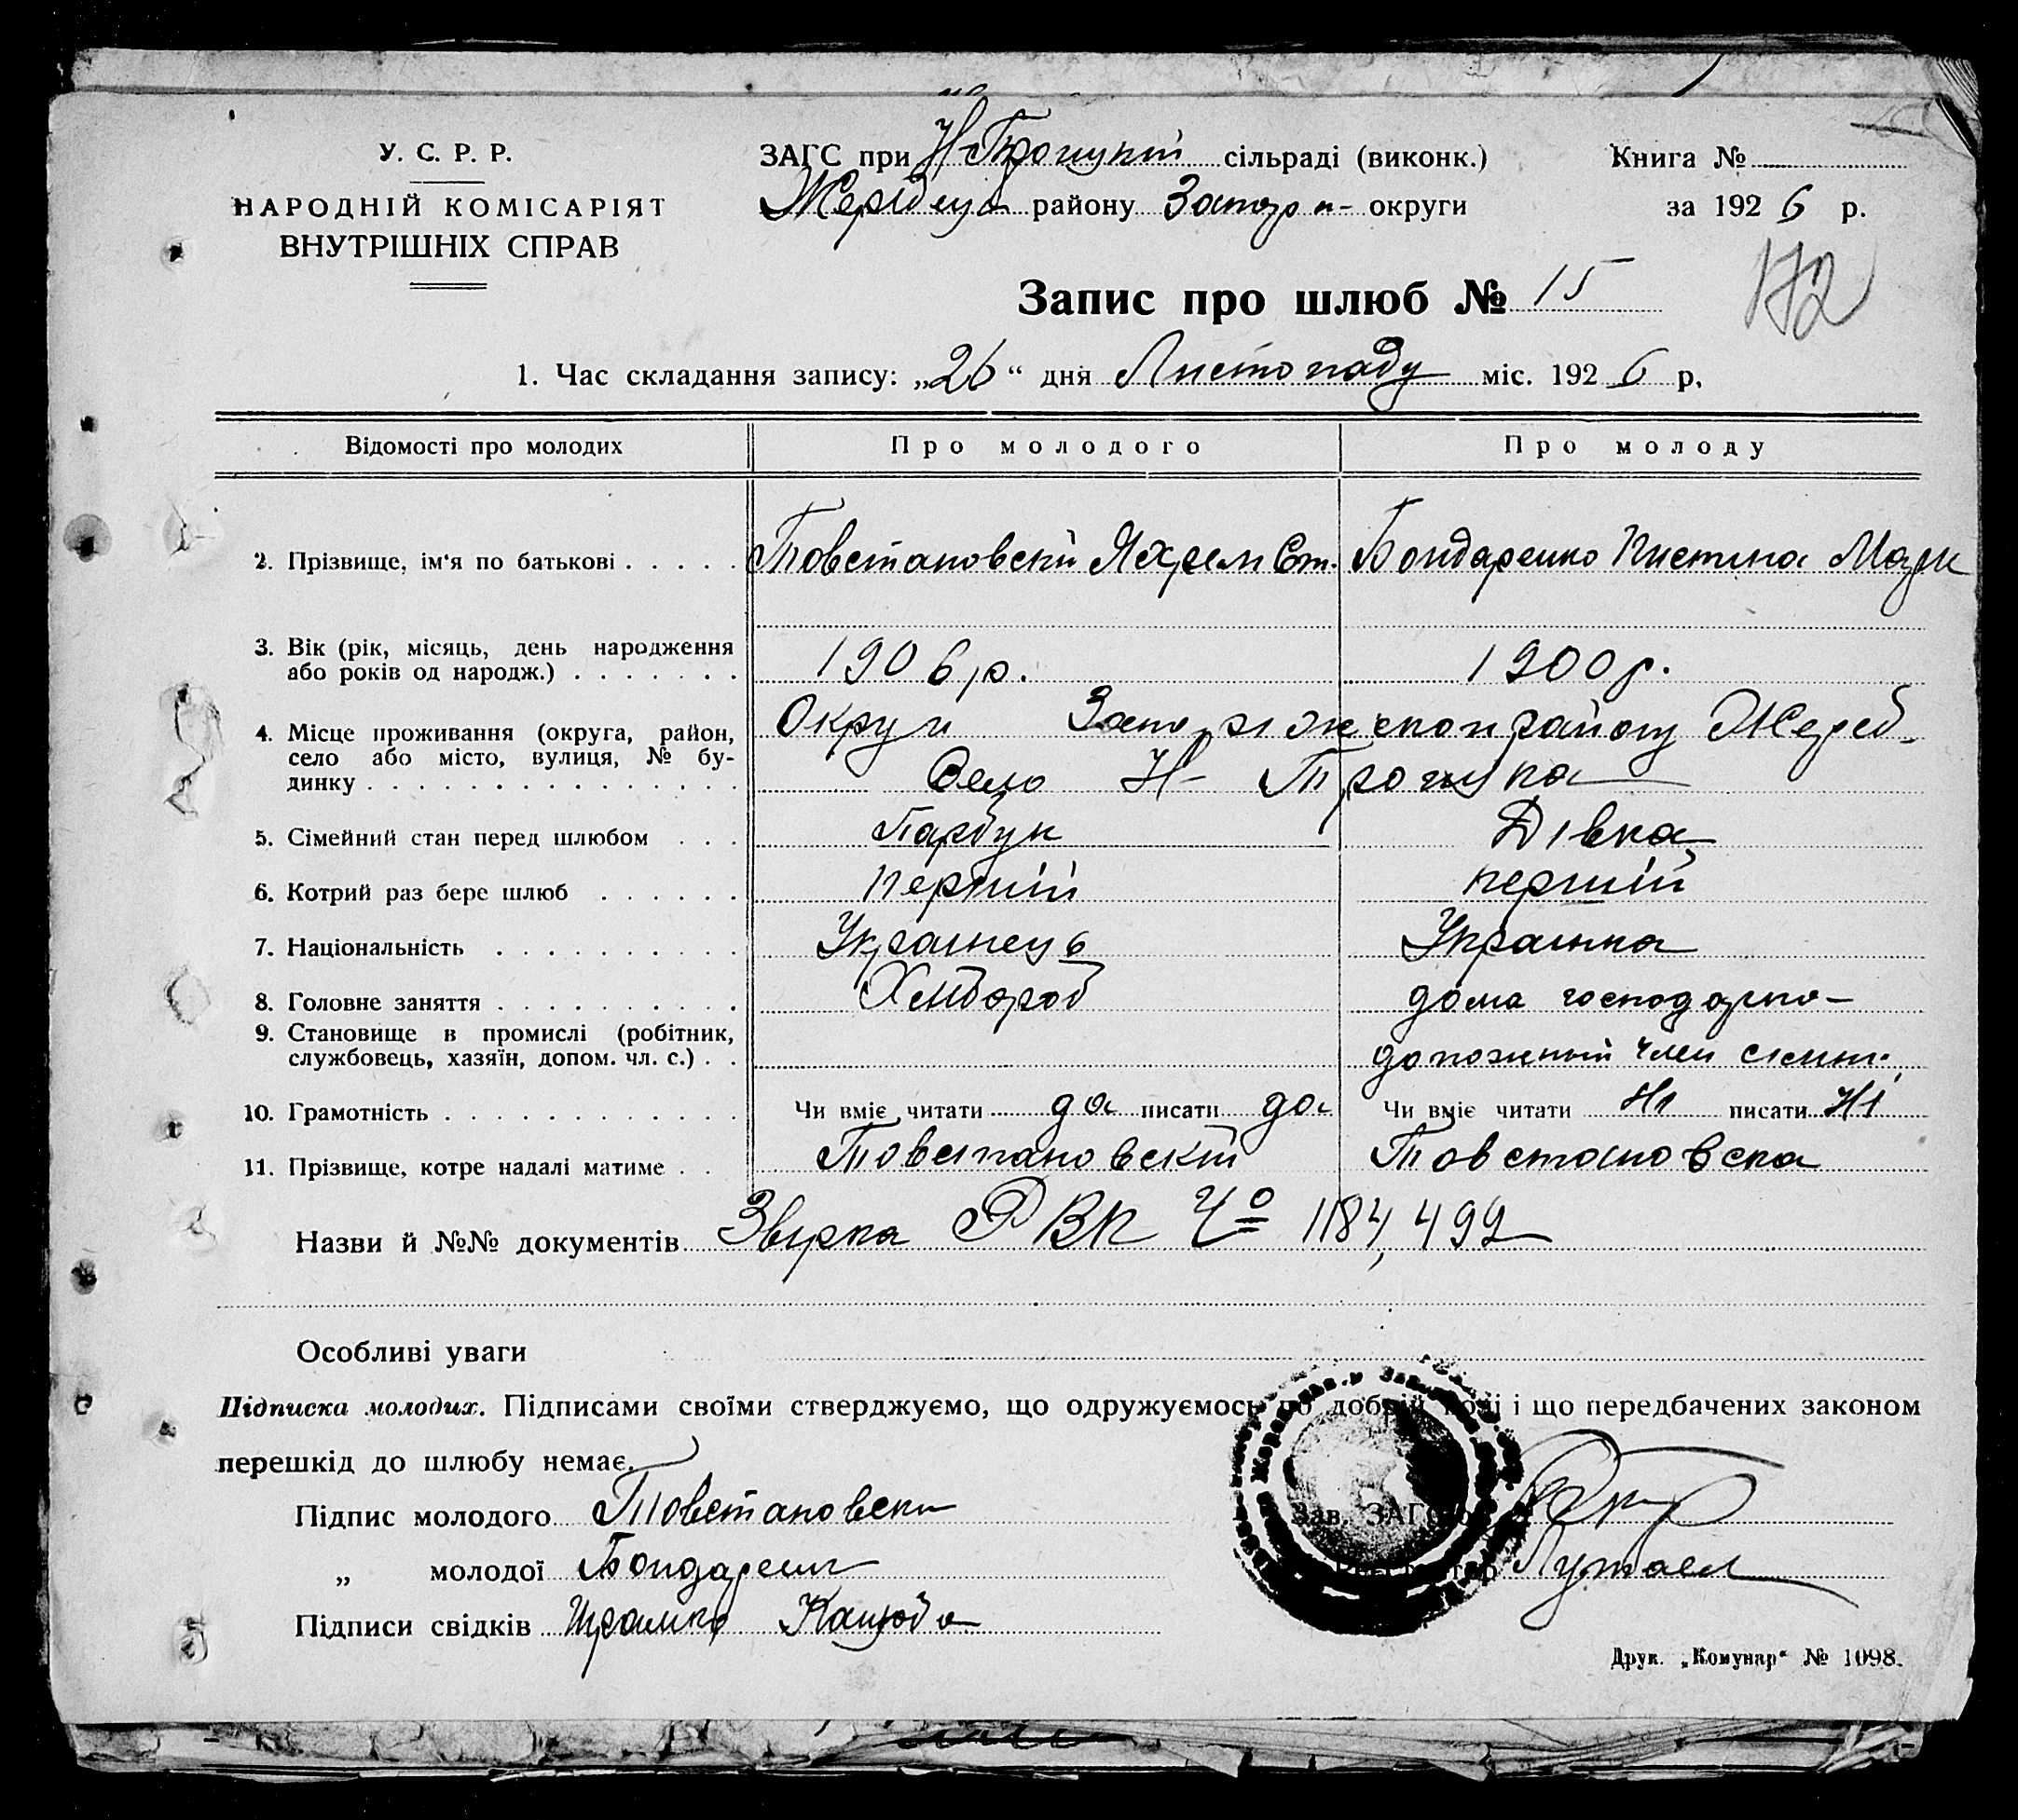 У. С. Р. Р.
НАРОДНІЙ КОМІСАРІЯТ
ВНУТРІШНІХ СПРАВ
ЗАГС при Н-Троицкій сільраді (виконк.)
Жеребец району Запор - округи
Книга №
за 1926 р.
172
Запис про шлюб № 15
1. Час складання запису: „26“ дня Листопаду міс. 1926 р.
Відомості про молодих Про молодого Про молоду
2. Прізвище, ім'я по батькові Товстановскій Ст. Бондаренко Марк
3. Вік (рік, місяць, день народження 1906 р. 1900 р.
або років од народж.)
4. Місце проживання (округа, район, Округи району Жереб-
село або місто, вулиця, № бу- Село Н-
динку
5. Сімейний стан перед шлюбом Парубук Дівка
6. Котрий раз бере шлюб перший перший
7. Національність Українець Українка
8. Головне заняття Хлібороб дома господарка-
9. Становище в промислі (робітник,
службовець, хазяїн, допом. чл. с.) член
10. Грамотність Чи вміє читати да писати да Чи вміє читати Ні писати Ні
11. Прізвище, котре надалі матиме Товстановскій Товстановска
Назви й №№ документів РВК Чо 1184, 499
Особливі уваги
Підписка молодих. Підписами своїми стверджуємо, що одружуємось по добрій волі і що передбачених законом
перешкід до шлюбу немає.
Підпис молодого Товстановски Зав. ЗАГС'ом
„ молодої Бондаренк
Підписи свідків Шрамко Кацюба
Друк. „Комунар“ № 1098.